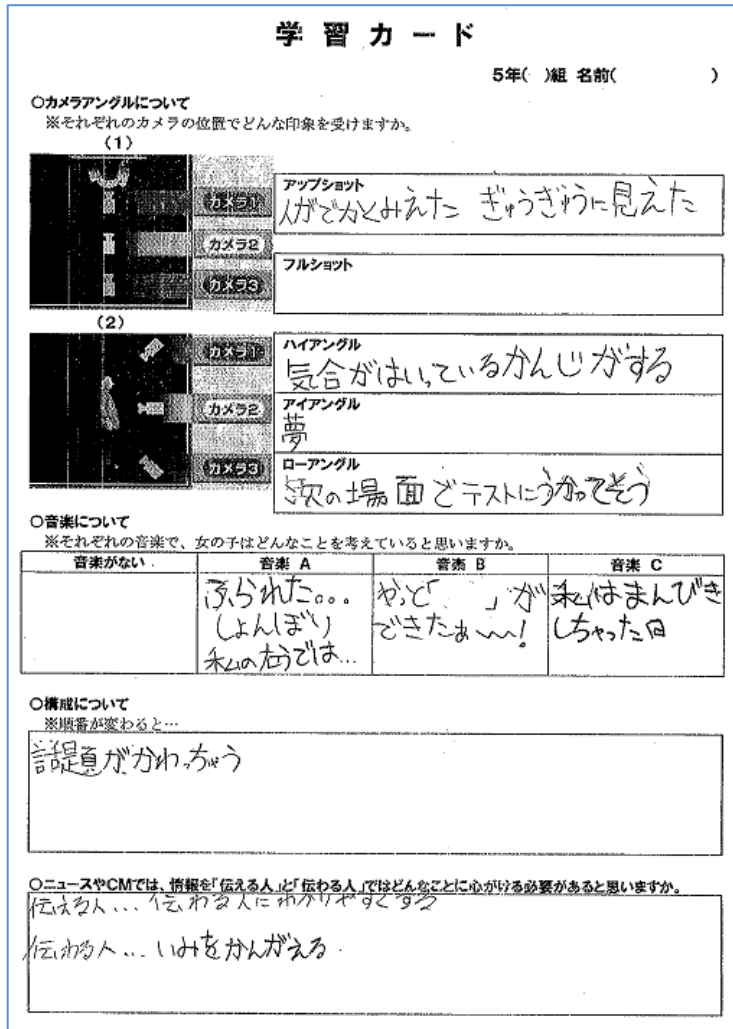 学習カード
5年( )組 名前( )
○カメラアングルについて
※それぞれのカメラの位置でどんな印象を受けますか。
(1)
カメラ1
カメラ2
カメラ3
アップショット
人がでかとみえた ぎゅうぎゅうに見えた
フルショット
(2)
カメラ1
カメラ2
カメラ3
ハイアングル
気合がはいっているかんじがする
アイアングル
夢
ローアングル
次の場面でテストにうかってそう
○音楽について
※それぞれの音楽で、女の子はどんなことを考えていると思いますか。
音楽がない
音楽 A
音楽 B
音楽 C
ふられた。。。
しょんぼり
私の
では…
やっと「 」が
できたぁ~~!
私はまんびき
しちゃった
○構成について
※順番が変わると…
話題がかわっちゃう
○ニュースやCMでは、情報を「伝える人」と「伝わる人」ではどんなことに心がける必要があると思いますか。
伝える人…伝わる人にわかりやすくする
伝わる人…いみをかんがえる